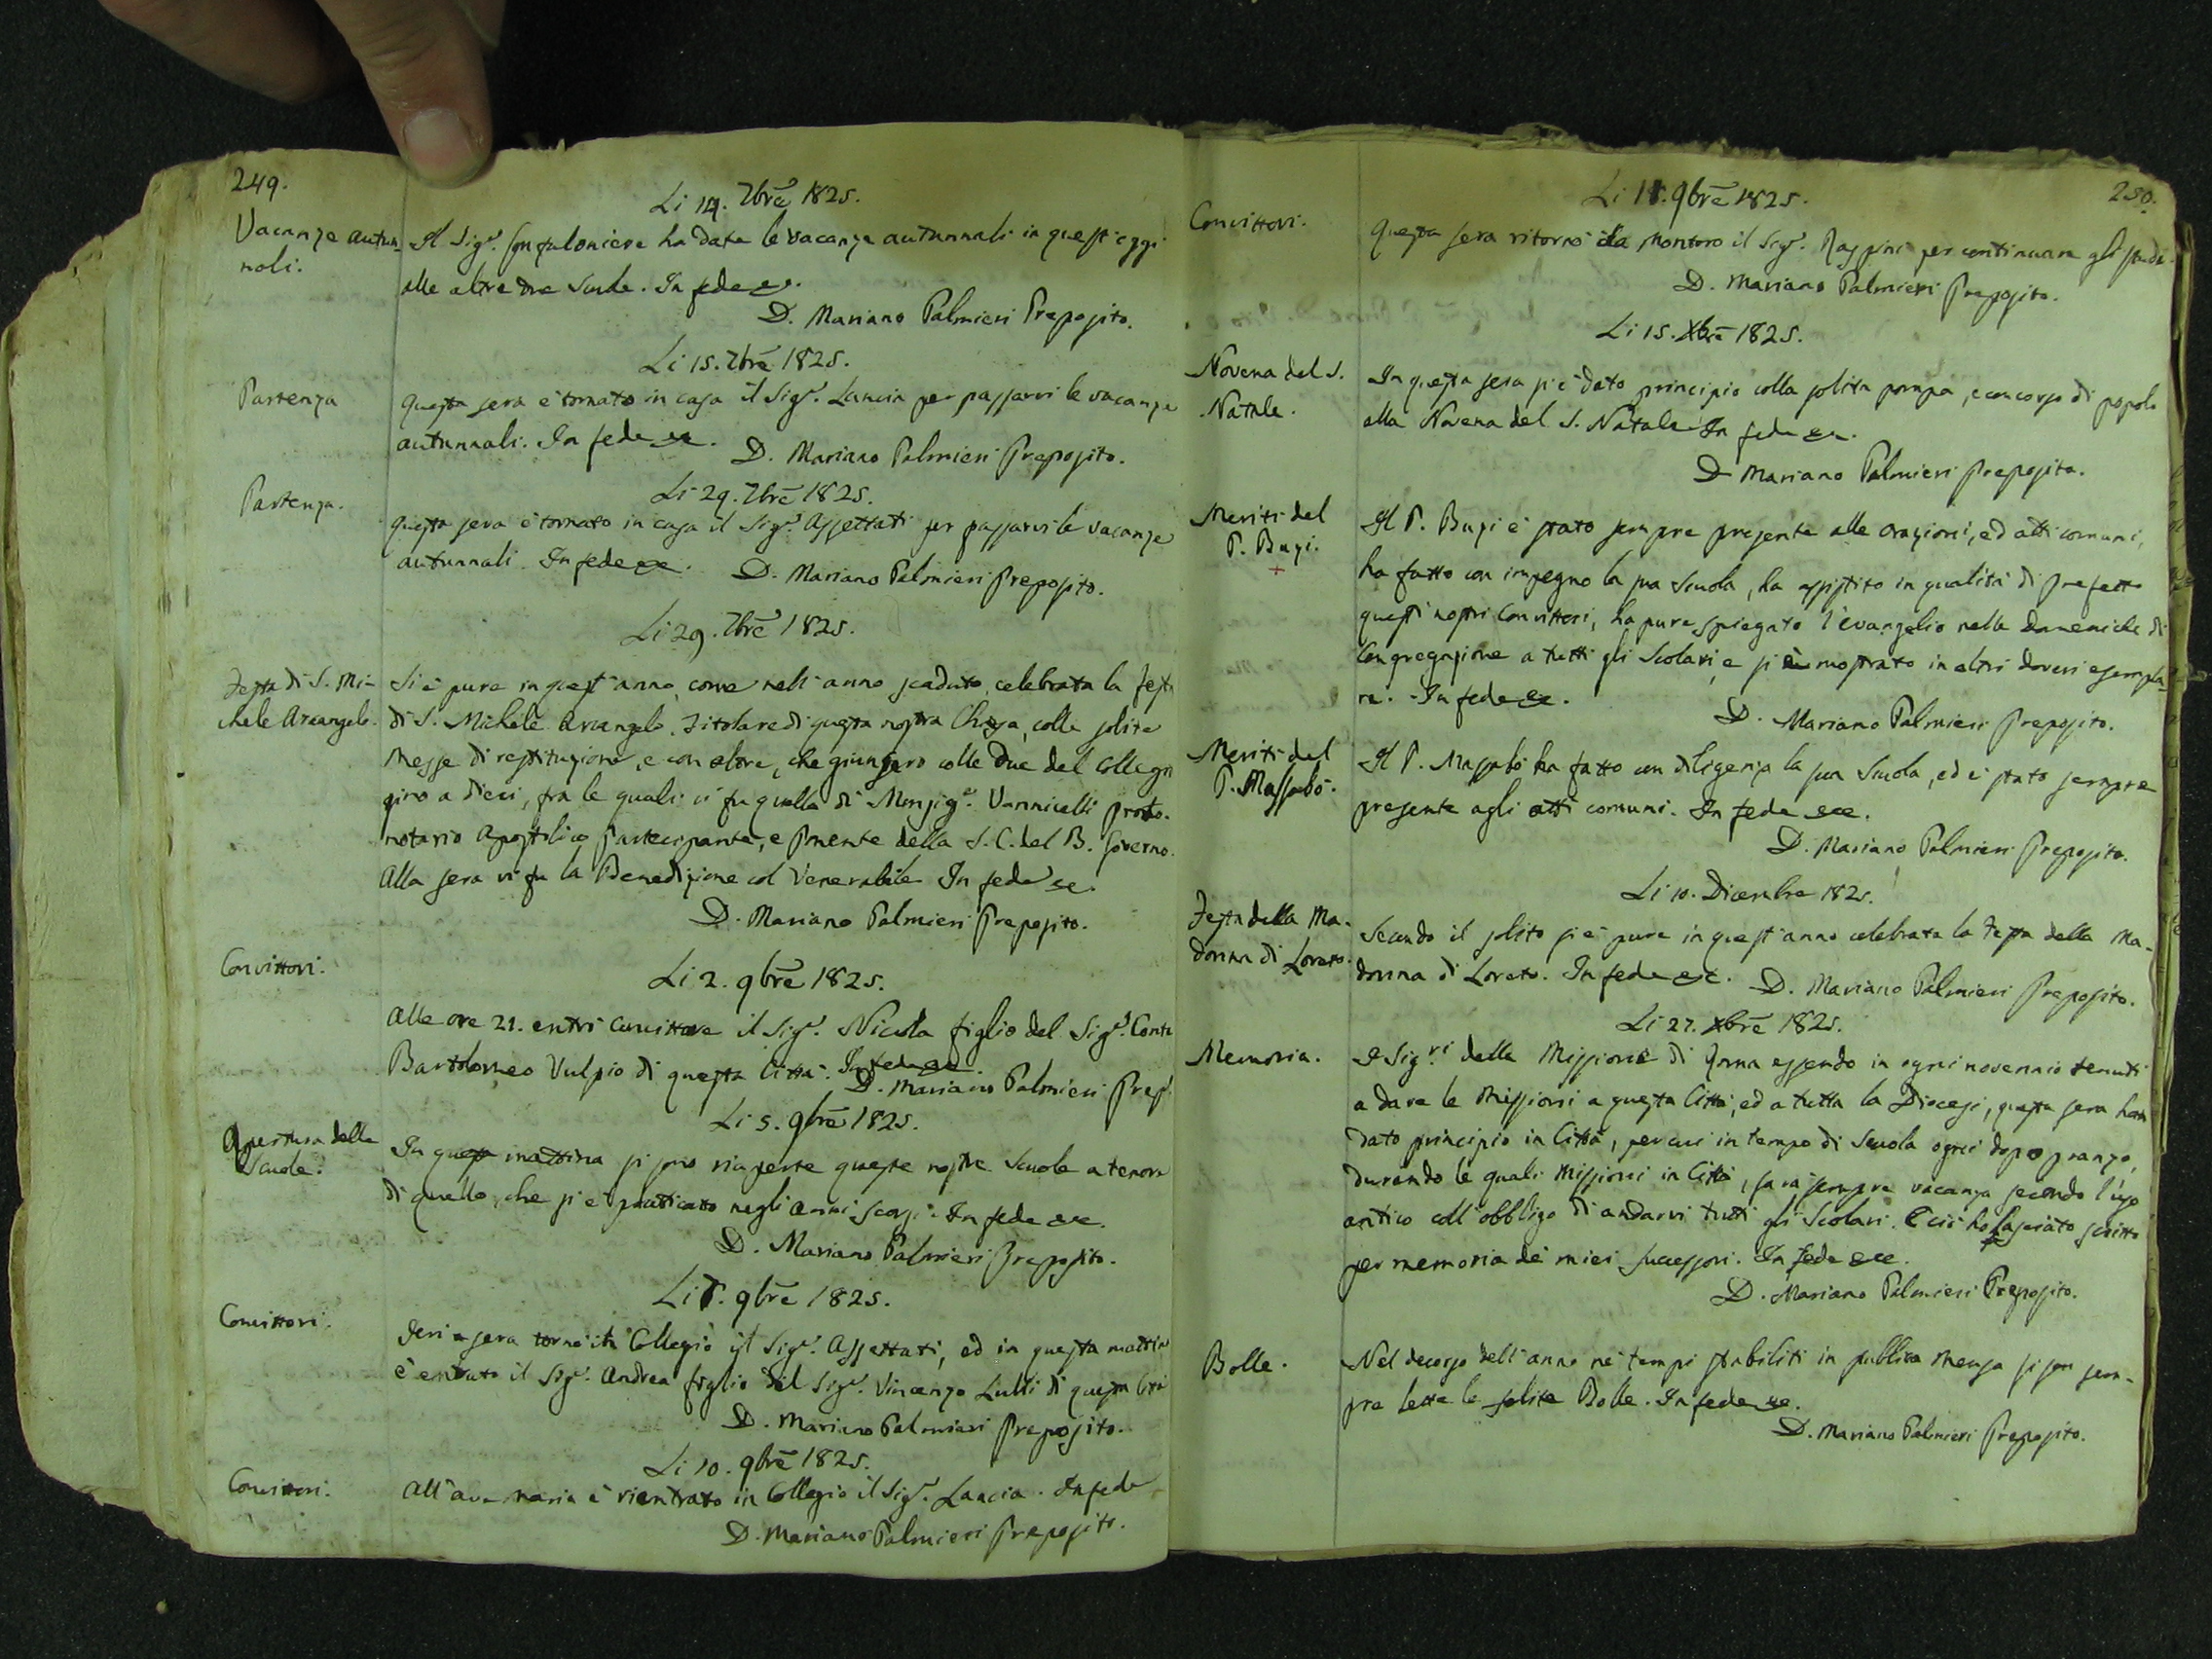 249.
Li 14. 7brē 1825.
Vacanze autun-
nali.
Il Sigr. Gonfaloniere ha date le vacanze autunnali in quest'oggi
alle altre due Scuole. In fede ec.
D. Mariano Palmieri Preposito.
Li 15. 7brē 1825.
Partenza
Questa sera è tornato in casa il Sigr. Lancia per passarvi le vacanze
autunnali. In fede ec. D. Mariano Palmieri Preposito.
Li 29. 7brē 1825.
Partenza.
Questa sera è tornato in casa il Sigr. Assettati per passarvi le vacanze
autunnali. In fede ec. D. Mariano Palmieri Preposito.
Li 29. 7brē 1825.
Festa di S. Mi-
chele Arcangelo.
Si è pure in quest'anno, come nell'anno scaduto, celebrata la festa
di S. Michele Arcangelo. Titolare di questa nostra Chiesa, colle solite
Messe di restituzione, e con altre, che giunsero colle due del Collegio
sino a dieci, fra le quali vi fu quella di Monsigr. Vannicelli Proto-
notario Apostolico Partecipante, e Ponente della S. C. del B. Governo.
Alla sera vi fu la Benedizione col Venerabile In fede ec.
D. Mariano Palmieri Preposito.
Li 2. 9brē 1825.
Convittori.
Alle ore 21. entrò Convittore il Sigr. Nicola figlio del Sigr. Conte
Bartolomeo Vulpio di questa Città. In fede ec
D. Mariano Palmieri Prep.
Li 5. 9brē 1825.
Apertura delle
Scuole.
In questa mattina si sono riaperte queste nostre Scuole a tenore
di quello, che si è praticato negli anni scorsi. In fede ec.
D. Mariano Palmieri Preposito.
Li 8. 9brē 1825.
Convittori.
Jeri sera tornò in Collegio il Sigr. Assettati, ed in questa mattina
è entrato il Sigr. Andrea figlio del Sigr. Vincenzo Lulli di questa Città
D. Mariano Palmieri Preposito.
Li 10. 9brē 1825.
Convittori.
All'ave maria è rientrato in Collegio il Sigr. Lancia. In fede
D. Mariano Palmieri Preposito.
250.
Li 18. 9brē 1825.
Convittori.
Questa sera ritornò da Montoro il Sigr. per continuare gli studi.
D. Mariano Palmieri Preposito.
Li 15. Xbrē 1825.
Novena del S.
Natale.
In questa sera si è dato principio colla solita pompa, e concorso di popolo
alla Novena del S. Natale In fede ec.
D Mariano Palmieri Preposito.
Meriti del
P. Bugi.
Il P. Bugi è stato sempre presente alle orazioni, ed atti comuni,
ha fatto con impegno la sua Scuola, ha assistito in qualità di Prefetto
questi nostri Convittori, ha pure spiegato l'evangelio nelle Domeniche di
Congregazione a tutti gli Scolari, e si è mostrato in altri doveri esempla-
re. In fede ec.
D. Mariano Palmieri Preposito.
Meriti del
P. Massabò.
Il P. Massabò ha fatto con diligenza la sua Scuola, ed è stato sempre
presente agli atti comuni. In fede ec.
D. Mariano Palmieri Preposito.
Li 10. Dicembre 1825.
Festa della Ma-
donna di Loreto.
Secondo il solito si è pure in quest'anno celebrata la Festa della Ma-
donna di Loreto. In fede ec. D. Mariano Palmieri Preposito.
Li 27. Xbrē 1825.
Memoria.
I Sigri della Missione di Roma essendo in ogni novennio tenuti
a dare le Missioni a questa Città, ed a tutta la Diocesi, questa sera han
dato principio in Città, per cui in tempo di Scuola ogni dopo pranzo,
durando le quali Missioni in Città, sarà sempre vacanza secondo l'uso
antico coll'obbligo di andarvi tutti gli Scolari. E ciò ho lasciato scritto
per memoria de' miei successori. In fede ec.
D. Mariano Palmieri Preposito.
Bolle.
Nel decorso dell'anno ne' tempi stabiliti in pubblica Mensa si son sem-
pre lette le solite Bolle. In fede ec.
D. Mariano Palmieri Preposito.